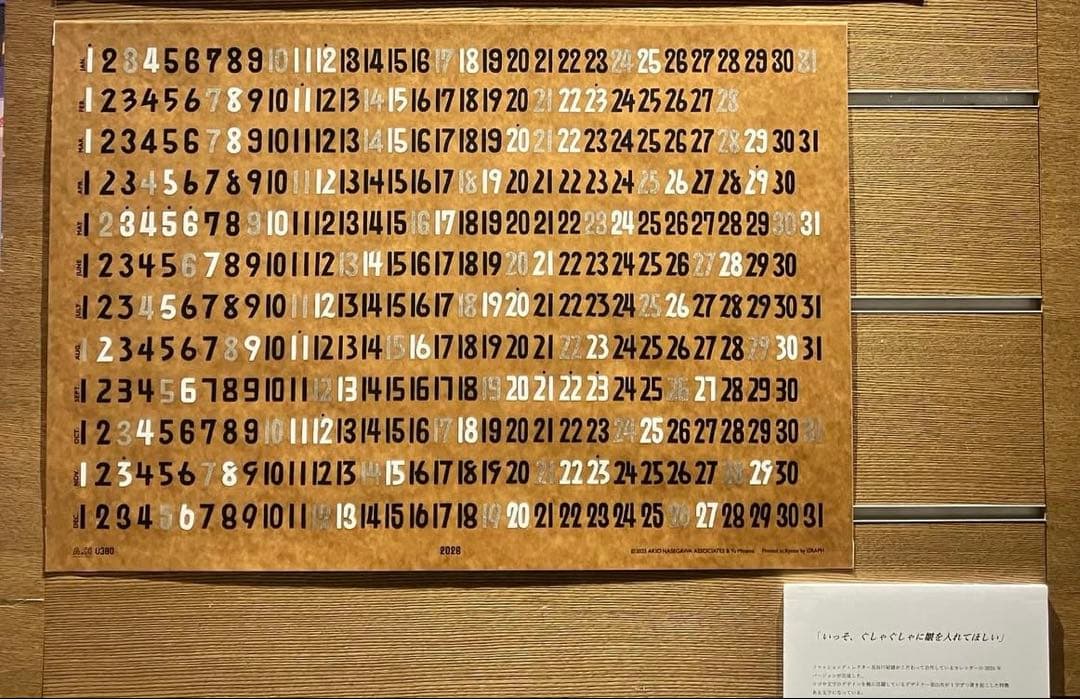 JAN. 1 2 3 4 5 6 7 8 9 10 11 12 13 14 15 16 17 18 19 20 21 22 23 24 25 26 27 28 29 30 31
FEB. 1 2 3 4 5 6 7 8 9 10 11 12 13 14 15 16 17 18 19 20 21 22 23 24 25 26 27 28
MAR. 1 2 3 4 5 6 7 8 9 10 11 12 13 14 15 16 17 18 19 20 21 22 23 24 25 26 27 28 29 30 31
APR. 1 2 3 4 5 6 7 8 9 10 11 12 13 14 15 16 17 18 19 20 21 22 23 24 25 26 27 28 29 30
MAY 1 2 3 4 5 6 7 8 9 10 11 12 13 14 15 16 17 18 19 20 21 22 23 24 25 26 27 28 29 30 31
JUNE 1 2 3 4 5 6 7 8 9 10 11 12 13 14 15 16 17 18 19 20 21 22 23 24 25 26 27 28 29 30
JULY 1 2 3 4 5 6 7 8 9 10 11 12 13 14 15 16 17 18 19 20 21 22 23 24 25 26 27 28 29 30 31
AUG. 1 2 3 4 5 6 7 8 9 10 11 12 13 14 15 16 17 18 19 20 21 22 23 24 25 26 27 28 29 30 31
SEPT. 1 2 3 4 5 6 7 8 9 10 11 12 13 14 15 16 17 18 19 20 21 22 23 24 25 26 27 28 29 30
OCT. 1 2 3 4 5 6 7 8 9 10 11 12 13 14 15 16 17 18 19 20 21 22 23 24 25 26 27 28 29 30 31
NOV. 1 2 3 4 5 6 7 8 9 10 11 12 13 14 15 16 17 18 19 20 21 22 23 24 25 26 27 28 29 30
DEC. 1 2 3 4 5 6 7 8 9 10 11 12 13 14 15 16 17 18 19 20 21 22 23 24 25 26 27 28 29 30 31
2026 ©2025 AKIO HASEGAWA ASSOCIATES & Printed in Kyoto by GRAPH
「いっそ、ぐしゃぐしゃに皺を入れてほしい」